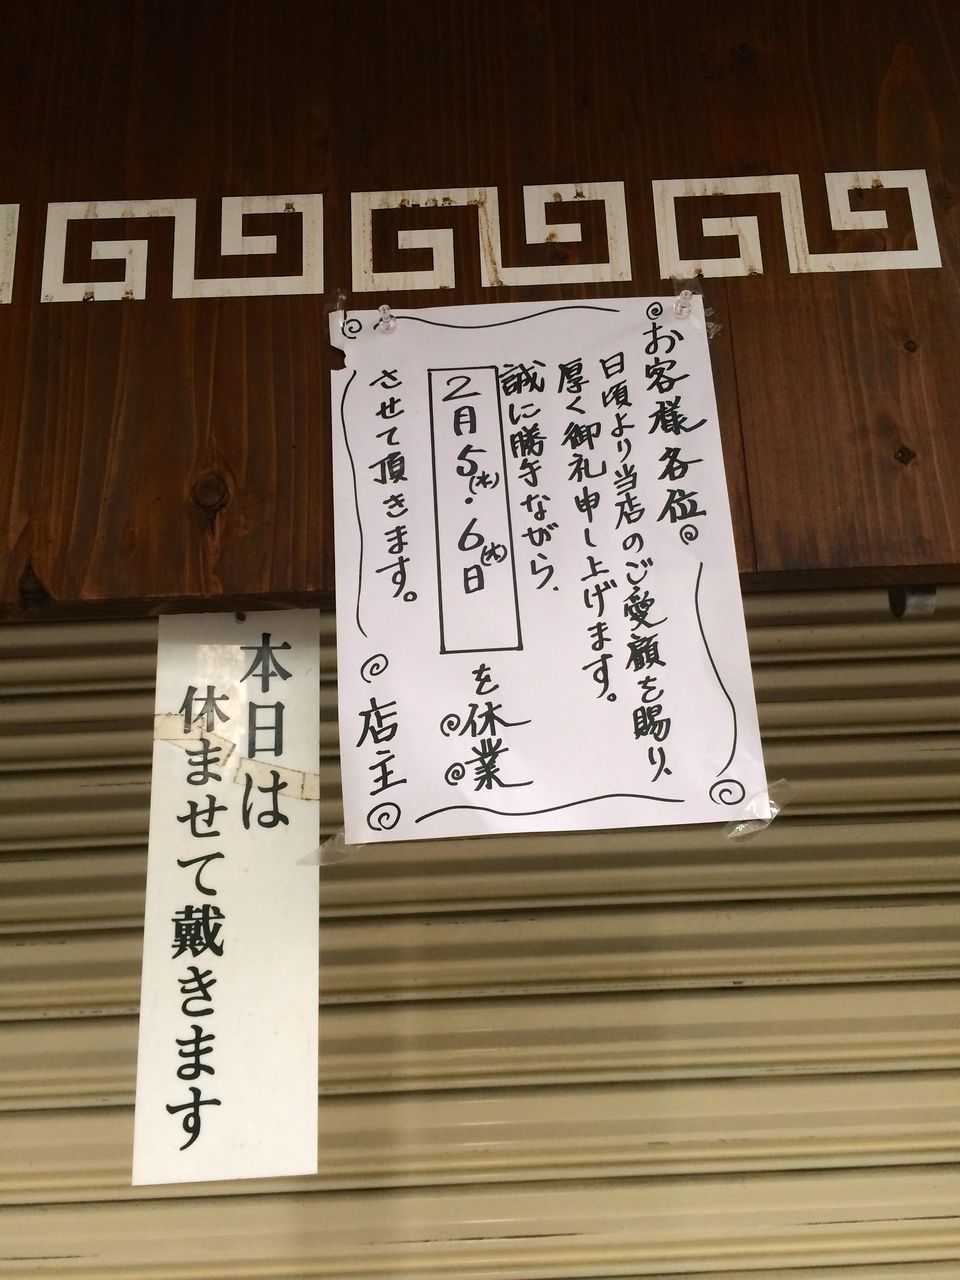 お客様各位
日頃より当店のご愛顧を賜り、
厚く御礼申し上げます。
誠に勝手ながら、
2月5(水)・6(木)日を休業
させて頂きます。
店主
本日は
休ませて戴きます